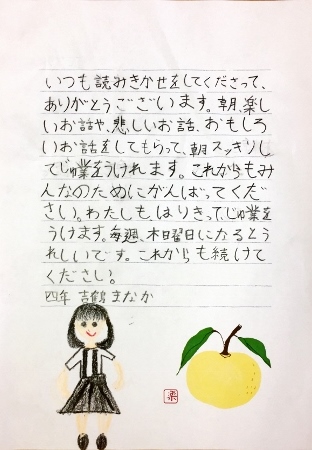 いつも読みきかせをしてくださって、
ありがとうございます。朝、楽し
いお話や、悲しいお話、おもしろ
いお話をしてもらって、朝スッキリし
てじゅ業をうけれます。これからもみ
んなのためにがんばってくださ
い。わたしもはりきって、じゅ業を
うけます。毎週、木曜日になるとう
れしいです。これからも続けて
ください！
四年 吉鶴 まなか